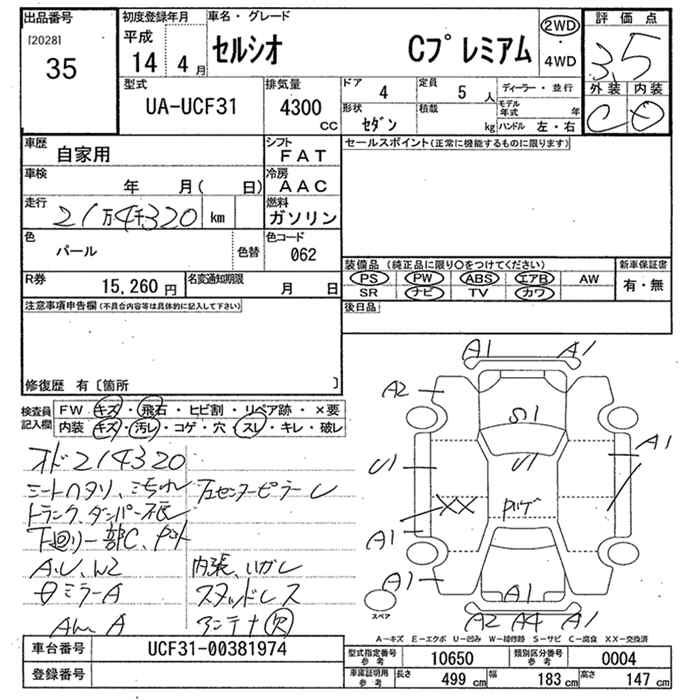 出品番号 初度登録年月 車名・グレード 2WD 評価点
[2028] 平成 セルシオ Cプレミアム ・ 3.5
35 14 4月 4WD
外装 内装
型式 排気量 ドア 4 定員 5 人 ディーラー・並行 C
UA-UCF31 4300 cc 形状 セダン 積載 kg モデル年式 年
ハンドル 左・右
車歴 自家用 シフト FAT セールスポイント(正常に機能するものに限ります)
車検 年 月( 日) 冷房 AAC
走行 21万4千320 km 燃料 ガソリン
色 パール 色替 色コード 062
装備品(純正品に限り○をつけてください) 新車保証書
R券 15,260円 名変通知期限 月 日 PS PW ABS エアB AW 有・無
SR ナビ TV カワ
注意事項申告欄(不具合内容等は具体的に記入して下さい) 後日品
修復歴 有〔箇所 〕
検査員記入欄 FW キズ・飛石・ヒビ割・リペア跡・×要
内装 キズ・汚レ・コゲ・穴・スレ・キレ・破レ
オド214320
シートヘタリ、汚れ
トランクダンパー
下回り一部C
A.U、W2 内張
ミラーA スタッドレス
A アンテナ
A1 A1
A2
S1
A1
U1 U1
XX
A1
A1 A1
A2 A4 A1
スペア
A―キズ E―エクボ U―凹み W―補修跡 S―サビ C―腐食 XX―交換済
車台番号 UCF31-00381974 型式指定番号参考 10650 類別区分番号参考 0004
登録番号 車庫証明用参考 長さ 499 cm 幅 183 cm 高さ 147 cm